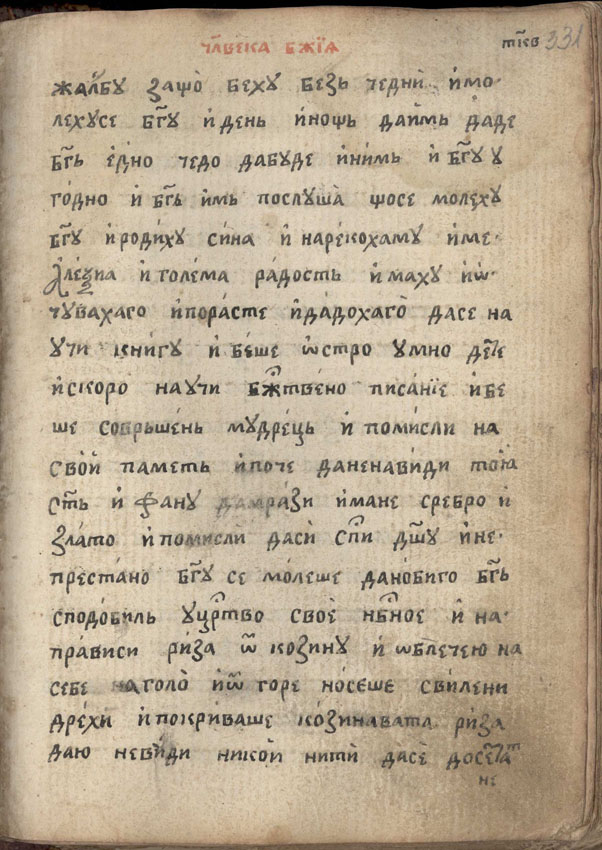 чл҃века бж҃їѧ
тк҃в 331
жалбу защо̀ беху̀ безь чеднѝ и҆ мо
лехусе бг҃у и҆ день и҆ нощь даи҆мь даде
бг҃ь е҆дно чедо да буде и҆ нимь и҆ бг҃у у
го́дно и҆ бг҃ь и҆мь послуша̀ щосе моле́ху
бг҃у и҆ роди́ху си́на и҆ нарекохаму и҆ме
а҆ле́ѯиа и҆ голе́ма ра́дость и҆маху и҆ѡ҆
чувахаго и҆ пора́сте и҆ да́дохаго̀ дасе на
учи кни́гу и҆ бе́ше ѡ҆стро умно дете
и҆ скоро научи бж҃твено писа́нїе и҆ бе
ше совршень мудре́ць и҆ помисли на
сво́й паметь и҆ поче да ненавиди тоѩ
ст҃ь и҆ фану̀ да мра́зи и҆мане сребро и҆
зла́то и҆ помисли дасѝ спи дш҃у и҆ не
преста́но бг҃у се мо́леше дано́биго бг҃ь
сподо́биль у цр҃тво своѐ нб҃ное и҆ на
пра́виси ри́за ѿ козину и҆ ѡ҆блечею на
себе на голо̀ и҆ ѿ горе но́сеше свилени
дре́хи и҆ покри́ваше ко́зинавата ри́за
даю неви́ди нико́и нити́ дасѐ досета
не